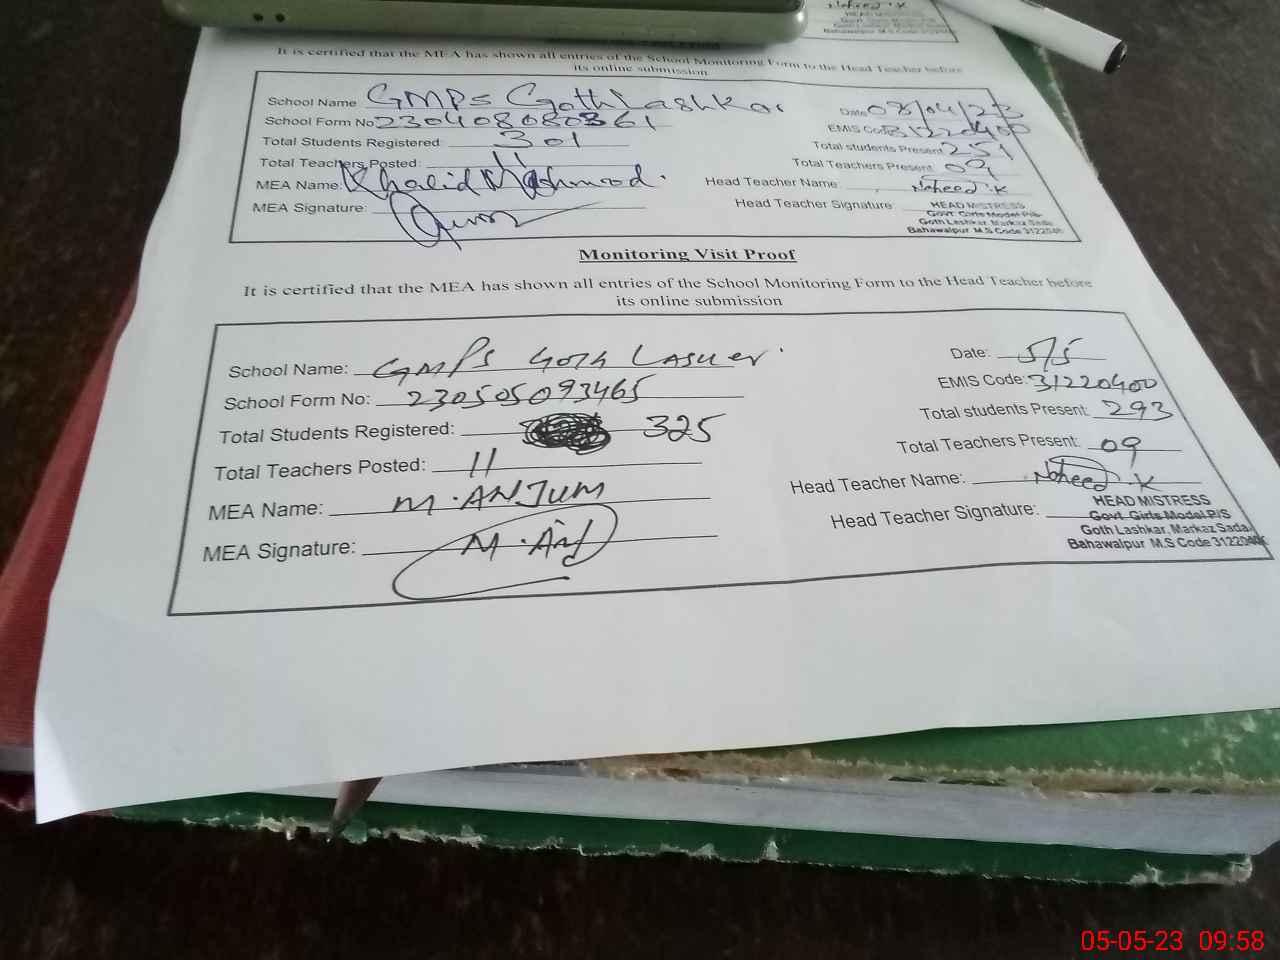 Naheed.K
HEAD MISTRESS
Bahawalpur M.S Code
It is certified that the MEA has shown all entries of the School Monitoring Form to the Head Teacher before
its online submission
School Name GMPS Goth Lashkar Date 08/04/23
School Form No 230408080361 EMIS Code 31220400
Total Students Registered: 301 Total students Present 251
Total Teachers Posted: 11 Total Teachers Present 09
MEA Name: Khalid Mahmood. Head Teacher Name: Naheed.K
MEA Signature: Head Teacher Signature: HEAD MISTRESS
Govt. Girls Model P/S
Goth Lashkar, Markaz Sadar
Bahawalpur M.S Code 3122040
Monitoring Visit Proof
It is certified that the MEA has shown all entries of the School Monitoring Form to the Head Teacher before
its online submission
School Name: GMPS Goth Lasker. Date: 5/5
School Form No: 230505093465 EMIS Code: 31220400
Total Students Registered: 325 Total students Present: 293
Total Teachers Posted: 11 Total Teachers Present: 09
MEA Name: M.ANJUM Head Teacher Name: Naheed.K
MEA Signature: M.Anj Head Teacher Signature: HEAD MISTRESS
Govt. Girls Model P/S
Goth Lashkar, Markaz Sada
Bahawalpur M.S Code 312204
05-05-23 09:58